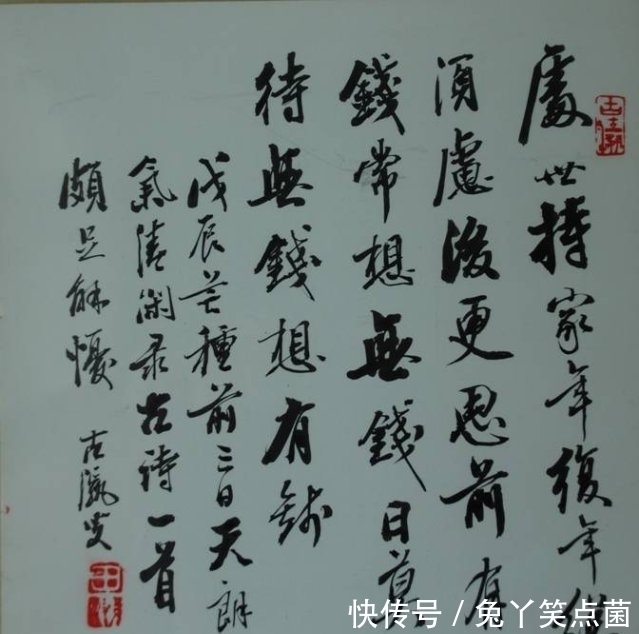 處世持家年復年
須慮後更思前有
錢常想無錢日莫
待無錢想有錢
戊辰芒種前三日天朗
氣清閑录古詩一首
頗足解懮 古瀛叟
快传号 / 兔丫笑点菌